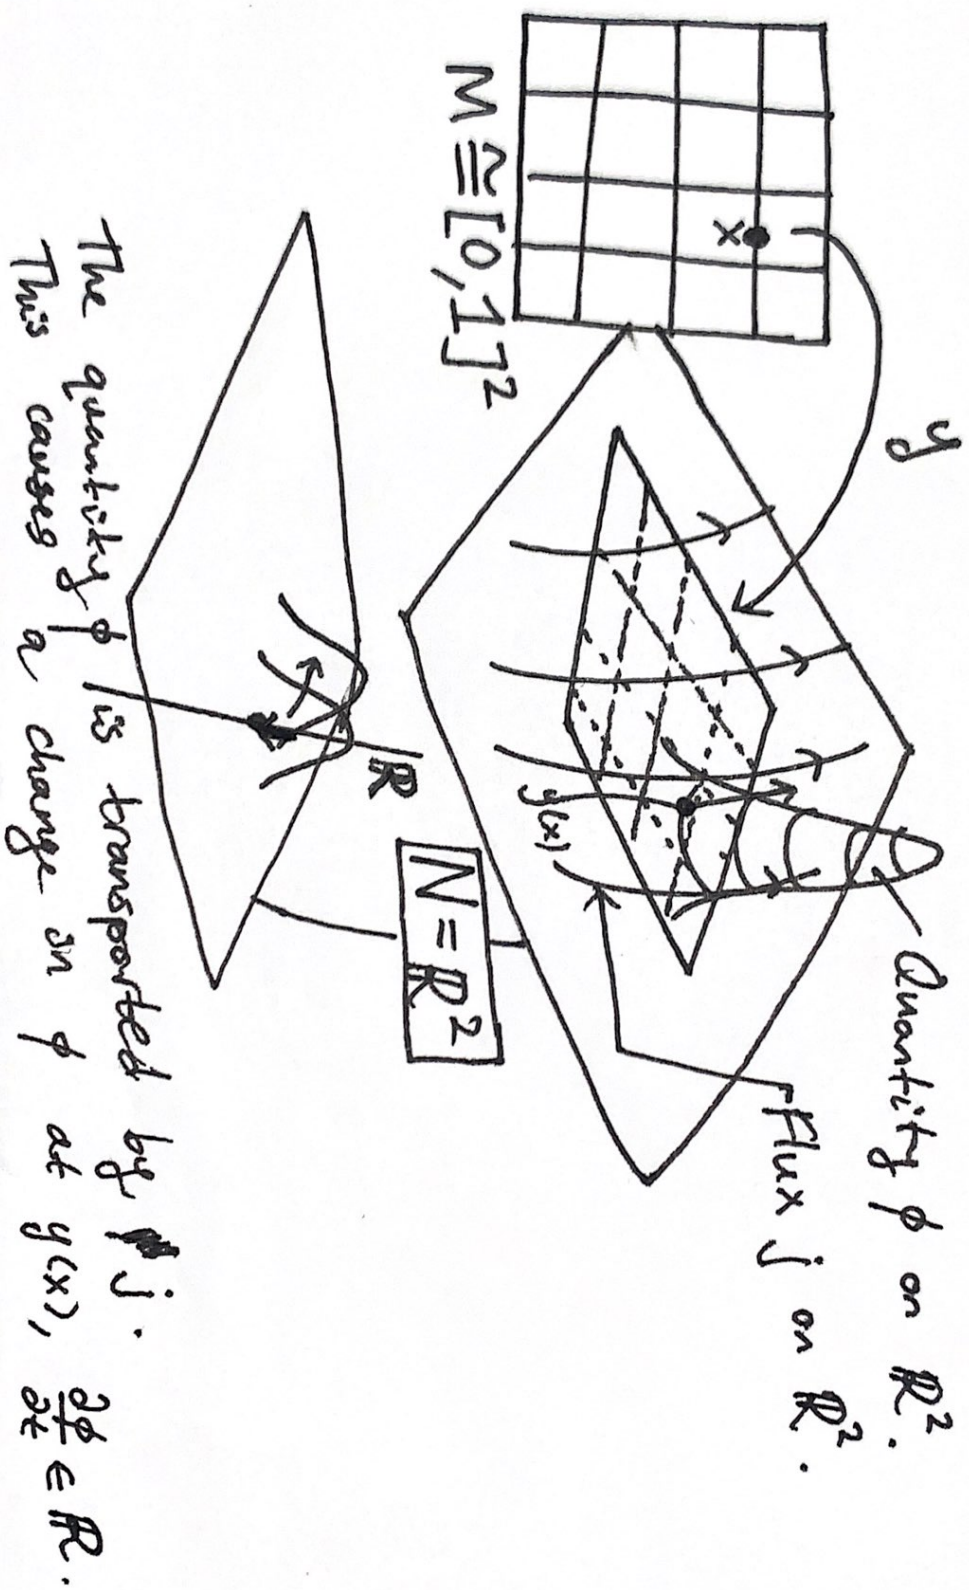 y
Quantity ϕ on ℝ².
Flux j on ℝ².
x
M ≅ [0,1]²
y(x)
N = ℝ²
ℝ
The quantity ϕ is transported by j.
This causes a change in ϕ at y(x), ∂ϕ/∂t ∈ ℝ.